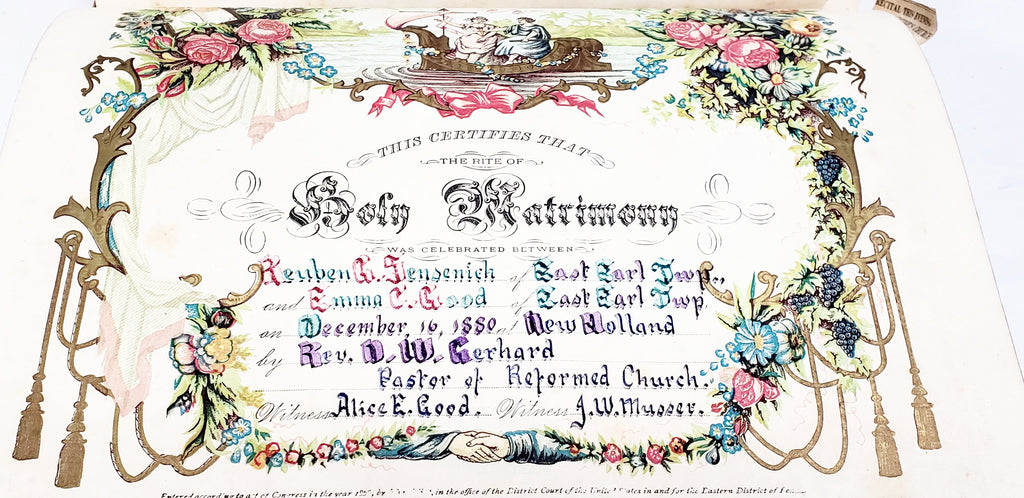 RECITAL
THIS CERTIFIES THAT
THE RITE OF
Holy Matrimony
WAS CELEBRATED BETWEEN
Reuben G. Sensenich of East Earl Twp.,
and Emma C. Good of East Earl Twp.
on December 16, 1880 at New Holland
by Rev. D. W. Gerhard
Pastor of Reformed Church.
Witness Alice E. Good. Witness J. W. Musser.
Entered according to act of Congress in the year by in the office of the District Court of the United States in and for the Eastern District of